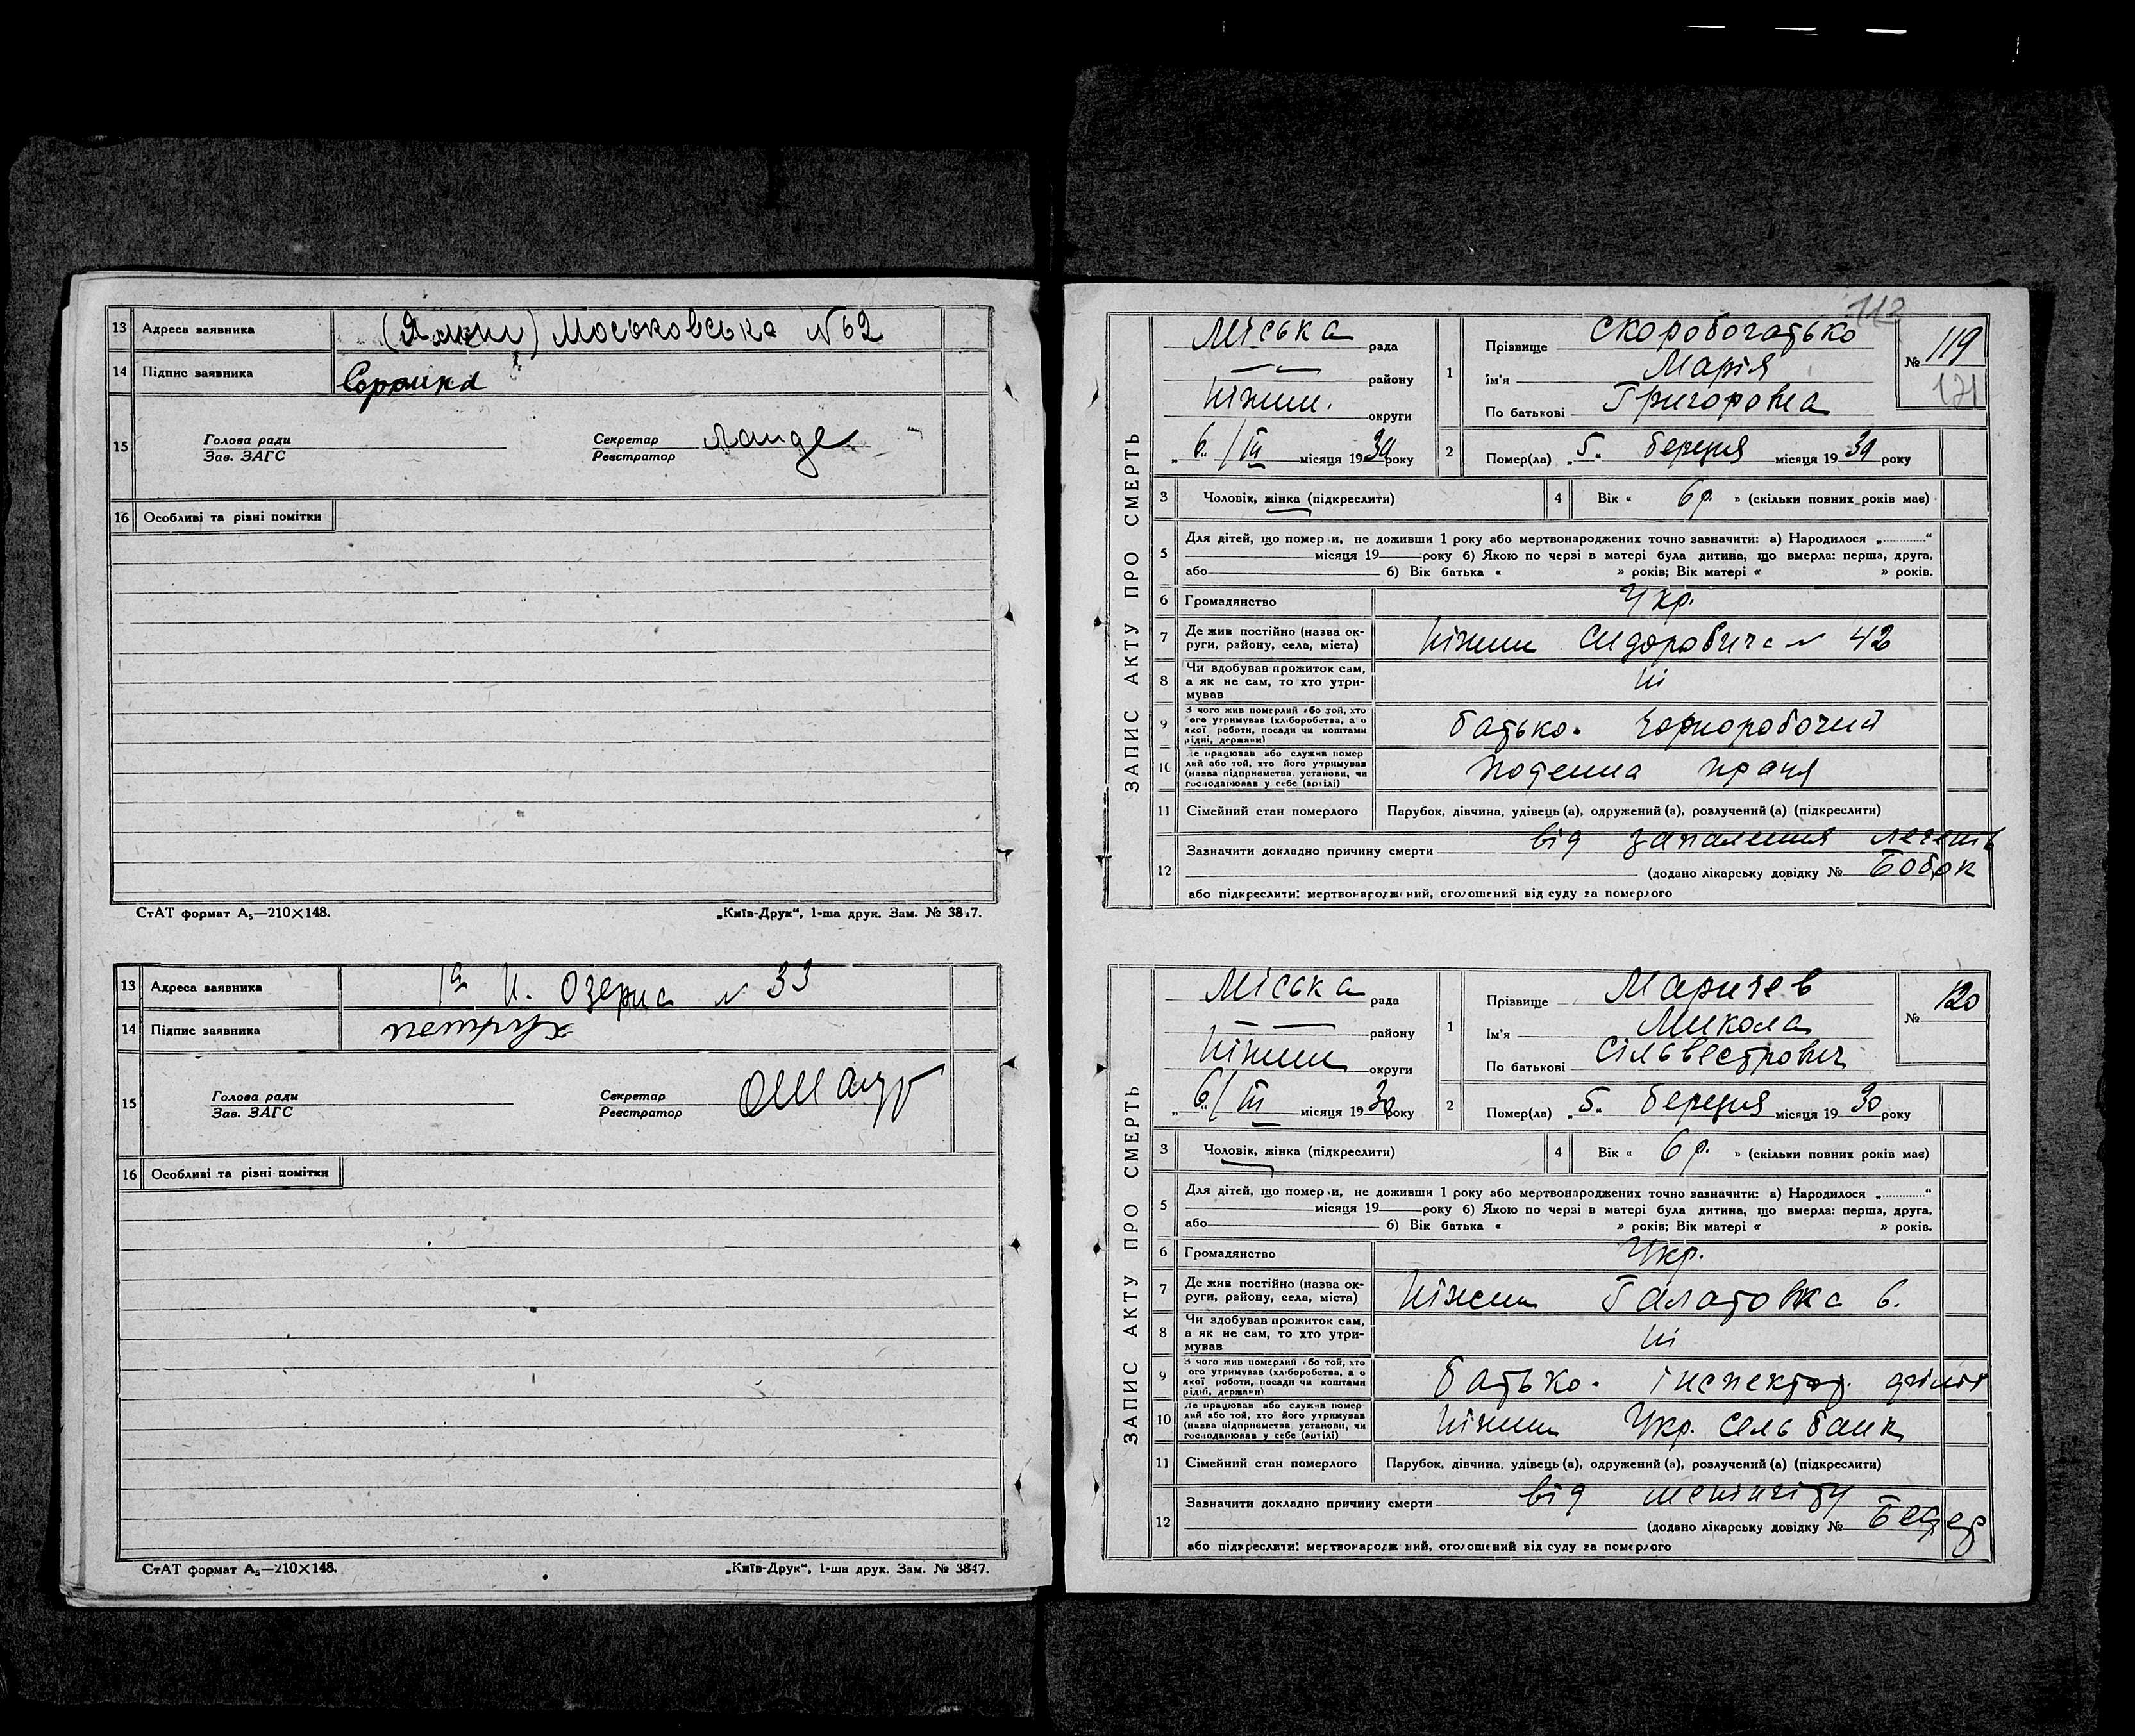 13 Адреса заявника Московська №62
14 Підпис заявника
15 Голова ради Зав. ЗАГС Секретар Реєстратор
16 Особливі та різні помітки
СтАТ формат А₅—210×148. „Київ-Друк“, 1-ша друк. Зам. № 3847.
13 Адреса заявника 1а Озерна № 33
14 Підпис заявника
15 Голова ради Зав. ЗАГС Секретар Реєстратор
16 Особливі та різні помітки
СтАТ формат А₅—210×148. „Київ-Друк“, 1-ша друк. Зам. № 3847.
112
ЗАПИС АКТУ ПРО СМЕРТЬ
Міська рада
району
Ніжин. округи
„6“/III місяця 1930 року
1 Прізвище Скоробогатько
Ім'я Марія
По батькові Григоровна
№ 119
121
2 Помер(ла) „5. березня місяця 1930 року
3 Чоловік, жінка (підкреслити)
4 Вік « 6 р. » (скільки повних років має)
5 Для дітей, що померли, не доживши 1 року або мертвонароджених точно зазначити: а) Народилося „............“
місяця 19 року б) Якою по черзі в матері була дитина, що вмерла: перша, друга,
або б) Вік батька « » років; Вік матері « » років.
6 Громадянство Укр.
7 Де жив постійно (назва округи, району, села, міста) Ніжин Сидоровича № 42
8 Чи здобував прожиток сам, а як не сам, то хто утримував Ні
9 З чого жив померлий або той, хто його утримував (хліборобства, а о якої роботи, посади чи коштами рідні, держави) батько. чорноробочий
10 Де працював або служив померлий або той, хто його утримував (назва підприємства, установи, чи господарював у себе (артілі) поденна праця
11 Сімейний стан померлого Парубок, дівчина, удівець (а), одружений (а), розлучений (а) (підкреслити)
12 Зазначити докладно причину смерти від запалення легенів
(додано лікарську довідку № Бобок
або підкреслити: мертвонароджений, оголошений від суду за померлого
ЗАПИС АКТУ ПРО СМЕРТЬ
Міська рада
району
Ніжин округи
„6“/III місяця 1930 року
1 Прізвище Маричев
Ім'я Микола
По батькові Сільвестрович
№ 120
2 Помер(ла) „5. березня місяця 1930 року
3 Чоловік, жінка (підкреслити)
4 Вік « 6 р. » (скільки повних років має)
5 Для дітей, що померли, не доживши 1 року або мертвонароджених точно зазначити: а) Народилося „............“
місяця 19 року б) Якою по черзі в матері була дитина, що вмерла: перша, друга,
або б) Вік батька « » років; Вік матері « » років.
6 Громадянство Укр.
7 Де жив постійно (назва округи, району, села, міста) Ніжин Галатовка 6.
8 Чи здобував прожиток сам, а як не сам, то хто утримував Ні
9 З чого жив померлий або той, хто його утримував (хліборобства, а о якої роботи, посади чи коштами рідні, держави) батько. інспектор
10 Де працював або служив померлий або той, хто його утримував (назва підприємства, установи, чи господарював у себе (артілі) Ніжин Укр. сель банк
11 Сімейний стан померлого Парубок, дівчина, удівець (а), одружений (а), розлучений (а) (підкреслити)
12 Зазначити докладно причину смерти від менінгіту
(додано лікарську довідку №
або підкреслити: мертвонароджений, оголошений від суду за померлого